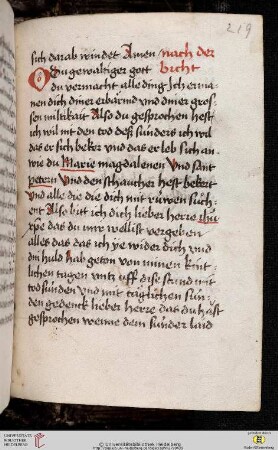 219
sich darab windet Amen nach der
O Du gewaltiger gott bicht
du vermacht alle ding Ich erma
nen dich diner erbarmd vnd diner gros
sen miltikait Also du gesprochen hest
ich wil nit den tod deß sünders ich wil
das er sich beker vnd das er leb sich an
wie du Marie magdalenen vnd sant
petern vnd den schaucher hest bekert
vnd alle die die dich mit rüwen süch
ent Also bitt ich dich lieber herre ihu
xpe das du mir wellist vergeben
alles das das ich ye wider dich vnd
din huld hab geton von minen kint
lichen tagen vntz vff dise stund mit
tod sünden vnd mit täglichen sün
den gedenck lieber herre dat du hast
gesprochen wenne dem sünder laid
UNIVERSITÄTS-
BIBLIOTHEK
HEIDELBERG
© Universitätsbibliothek Heidelberg